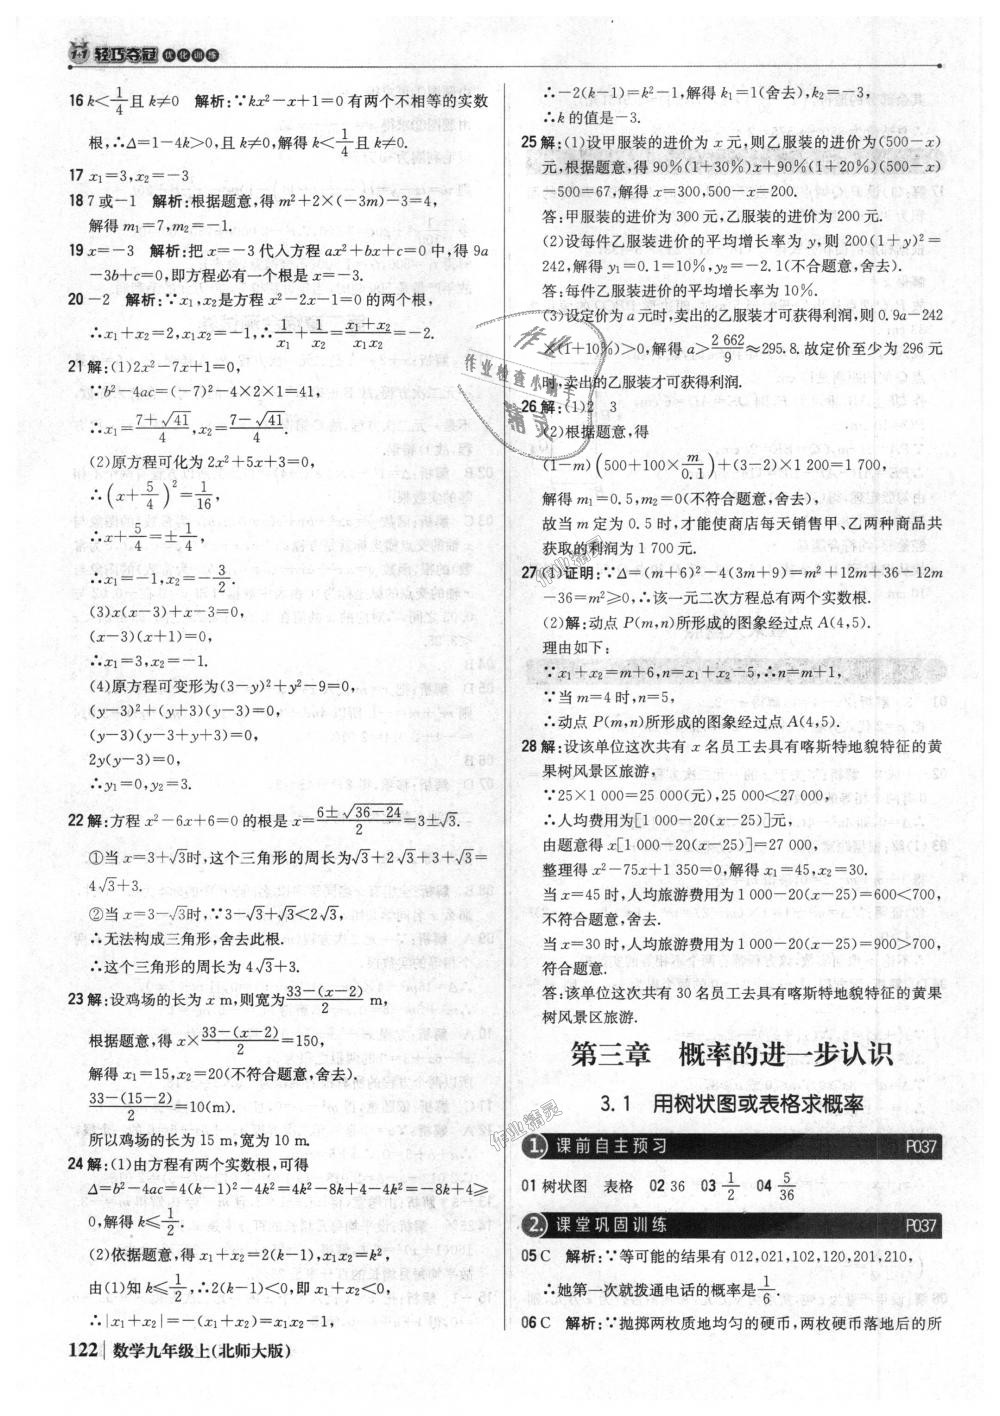 1+1 轻巧夺冠 优化训练
16 k<1/4且 k≠0 解析:∵kx²-x+1=0有两个不相等的实数
根,∴Δ=1-4k>0,且 k≠0,解得 k<1/4且 k≠0.
17 x₁=3,x₂=-3
18 7或-1 解析:根据题意,得 m²+2×(-3m)-3=4,
解得 m₁=7,m₂=-1.
19 x=-3 解析:把 x=-3代入方程 ax²+bx+c=0中,得 9a
-3b+c=0,即方程必有一个根是 x=-3.
20 -2 解析:∵x₁,x₂是方程 x²-2x-1=0的两个根,
∴x₁+x₂=2,x₁x₂=-1,∴1/x₁+1/x₂=(x₁+x₂)/(x₁x₂)=-2.
21 解:(1)2x²-7x+1=0,
∵b²-4ac=(-7)²-4×2×1=41,
∴x₁=(7+√41)/4,x₂=(7-√41)/4.
(2)原方程可化为 2x²+5x+3=0,
∴(x+5/4)²=1/16,
∴x+5/4=±1/4,
∴x₁=-1,x₂=-3/2.
(3)x(x-3)+x-3=0,
(x-3)(x+1)=0,
∴x₁=3,x₂=-1.
(4)原方程可变形为(3-y)²+y²-9=0,
(y-3)²+(y+3)(y-3)=0,
(y-3)(y-3+y+3)=0,
2y(y-3)=0,
∴y₁=0,y₂=3.
22 解:方程 x²-6x+6=0的根是 x=(6±√(36-24))/2=3±√3.
①当 x=3+√3时,这个三角形的周长为√3+2√3+3+√3=
4√3+3.
②当 x=3-√3时,∵3-√3+√3<2√3,
∴无法构成三角形,舍去此根.
∴这个三角形的周长为 4√3+3.
23 解:设鸡场的长为 x m,则宽为(33-(x-2))/2 m,
根据题意,得 x×(33-(x-2))/2=150,
解得 x₁=15,x₂=20(不符合题意,舍去).
(33-(15-2))/2=10(m).
所以鸡场的长为 15 m,宽为 10 m.
24 解:(1)由方程有两个实数根,可得
Δ=b²-4ac=4(k-1)²-4k²=4k²-8k+4-4k²=-8k+4≥
0,解得 k≤1/2.
(2)依据题意,得 x₁+x₂=2(k-1),x₁x₂=k²,
由(1)知 k≤1/2,∴2(k-1)<0,即 x₁+x₂<0,
∴|x₁+x₂|=-(x₁+x₂)=x₁x₂-1,
122 数学九年级上(北师大版)
∴-2(k-1)=k²-1,解得 k₁=1(舍去),k₂=-3,
∴k 的值是-3.
25 解:(1)设甲服装的进价为 x 元,则乙服装的进价为(500-x)
元,根据题意,得 90%(1+30%)x+90%(1+20%)(500-x)
-500=67,解得 x=300,500-x=200.
答:甲服装的进价为 300 元,乙服装的进价为 200 元.
(2)设每件乙服装进价的平均增长率为 y,则 200(1+y)²=
242,解得 y₁=0.1=10%,y₂=-2.1(不合题意,舍去).
答:每件乙服装进价的平均增长率为 10%.
(3)设定价为 a 元时,卖出的乙服装才可获得利润,则 0.9a-242
×(1+10%)>0,解得 a>2 662/9≈295.8.故定价至少为 296 元
时,卖出的乙服装才可获得利润.
26 解:(1)2 3
(2)根据题意,得
(1-m)(500+100×m/0.1)+(3-2)×1 200=1 700,
解得 m₁=0.5,m₂=0(不符合题意,舍去),
故当 m 定为 0.5 时,才能使商店每天销售甲、乙两种商品共
获取的利润为 1 700 元.
27 (1)证明:∵Δ=(m+6)²-4(3m+9)=m²+12m+36-12m
-36=m²≥0,∴该一元二次方程总有两个实数根.
(2)解:动点 P(m,n)所形成的图象经过点 A(4,5).
理由如下:
∵x₁+x₂=m+6,n=x₁+x₂-5,∴n=m+1,
∵当 m=4 时,n=5,
∴动点 P(m,n)所形成的图象经过点 A(4,5).
28 解:设该单位这次共有 x 名员工去具有喀斯特地貌特征的黄
果树风景区旅游,
∵25×1 000=25 000(元),25 000<27 000,
∴人均费用为[1 000-20(x-25)]元,
由题意得 x[1 000-20(x-25)]=27 000,
整理得 x²-75x+1 350=0,解得 x₁=45,x₂=30.
当 x=45 时,人均旅游费用为 1 000-20(x-25)=600<700,
不符合题意,舍去.
当 x=30 时,人均旅游费用为 1 000-20(x-25)=900>700,
符合题意.
答:该单位这次共有 30 名员工去具有喀斯特地貌特征的黄果
树风景区旅游.
第三章 概率的进一步认识
3.1 用树状图或表格求概率
1. 课前自主预习 P037
01 树状图 表格 02 36 03 1/2 04 5/36
2. 课堂巩固训练 P037
05 C 解析:∵等可能的结果有 012,021,102,120,201,210,
∴她第一次就拨通电话的概率是1/6.
06 C 解析:∵抛掷两枚质地均匀的硬币,两枚硬币落地后的所
作业
作业检查小助手
精灵
作业精灵
作业精灵